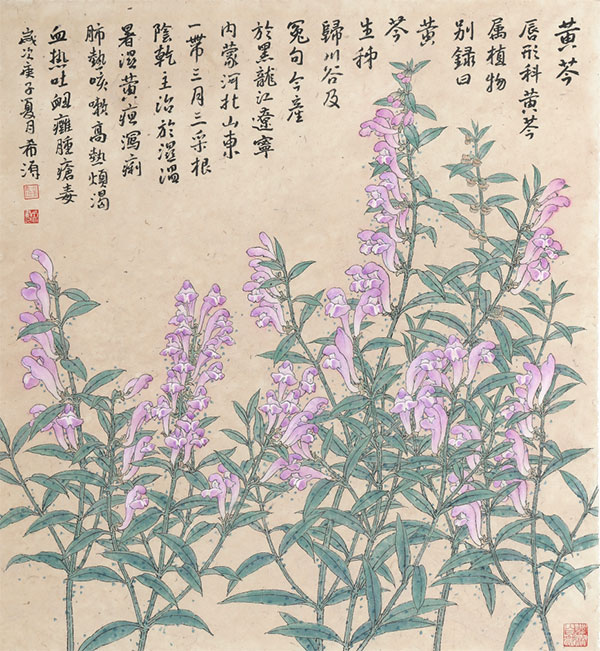 黄芩
唇形科黄芩
属植物
别録曰
黄
芩
生秭
歸川谷及
冤句今産
於黑龍江遼寧
内蒙河北山東
一带三月三采根
陰乾主治於濕温
暑濕黄疸瀉痢
肺熱咳嗽高熱煩渴
血热吐衄癰腫瘡毒
嵗次庚子夏月希